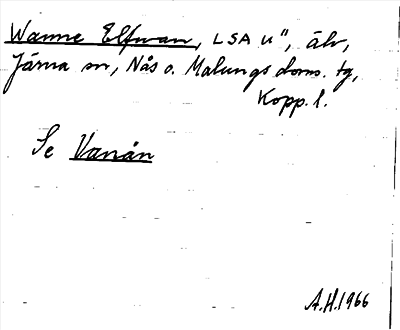 Wanne Elfwan, LSA u", älv,
Järna sn, Nås o. Malungs doms. tg,
Kopp. l.
Se Vanån
A.H. 1966